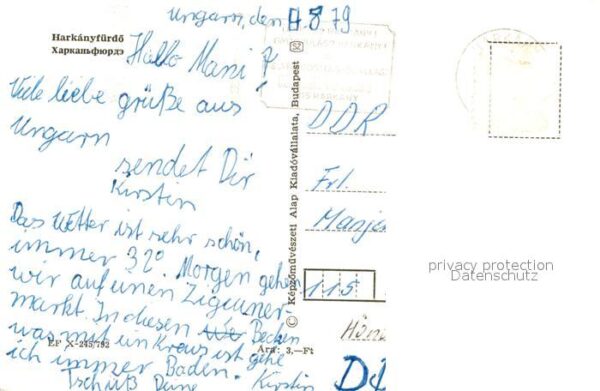 Ungarn, den 4.8.79
Harkányfürdő
Харканьфюрдэ
Hallo Mani!
Viele liebe grüße aus
Ungarn
sendet Dir
Kirstin
Das Wetter ist sehr schön,
immer 32°. Morgen gehen
wir auf einen Zigeuner-
markt. In diesen Becken
was mit ein Kreuz ist gehe
ich immer Baden.
Tschüß Deine Kirstin
EF X-245/792
Ára: 3,—Ft
© Képzőművészeti Alap Kiadóvállalata, Budapest
DDR
Frl.
Manje
115
privacy protection
Datenschutz